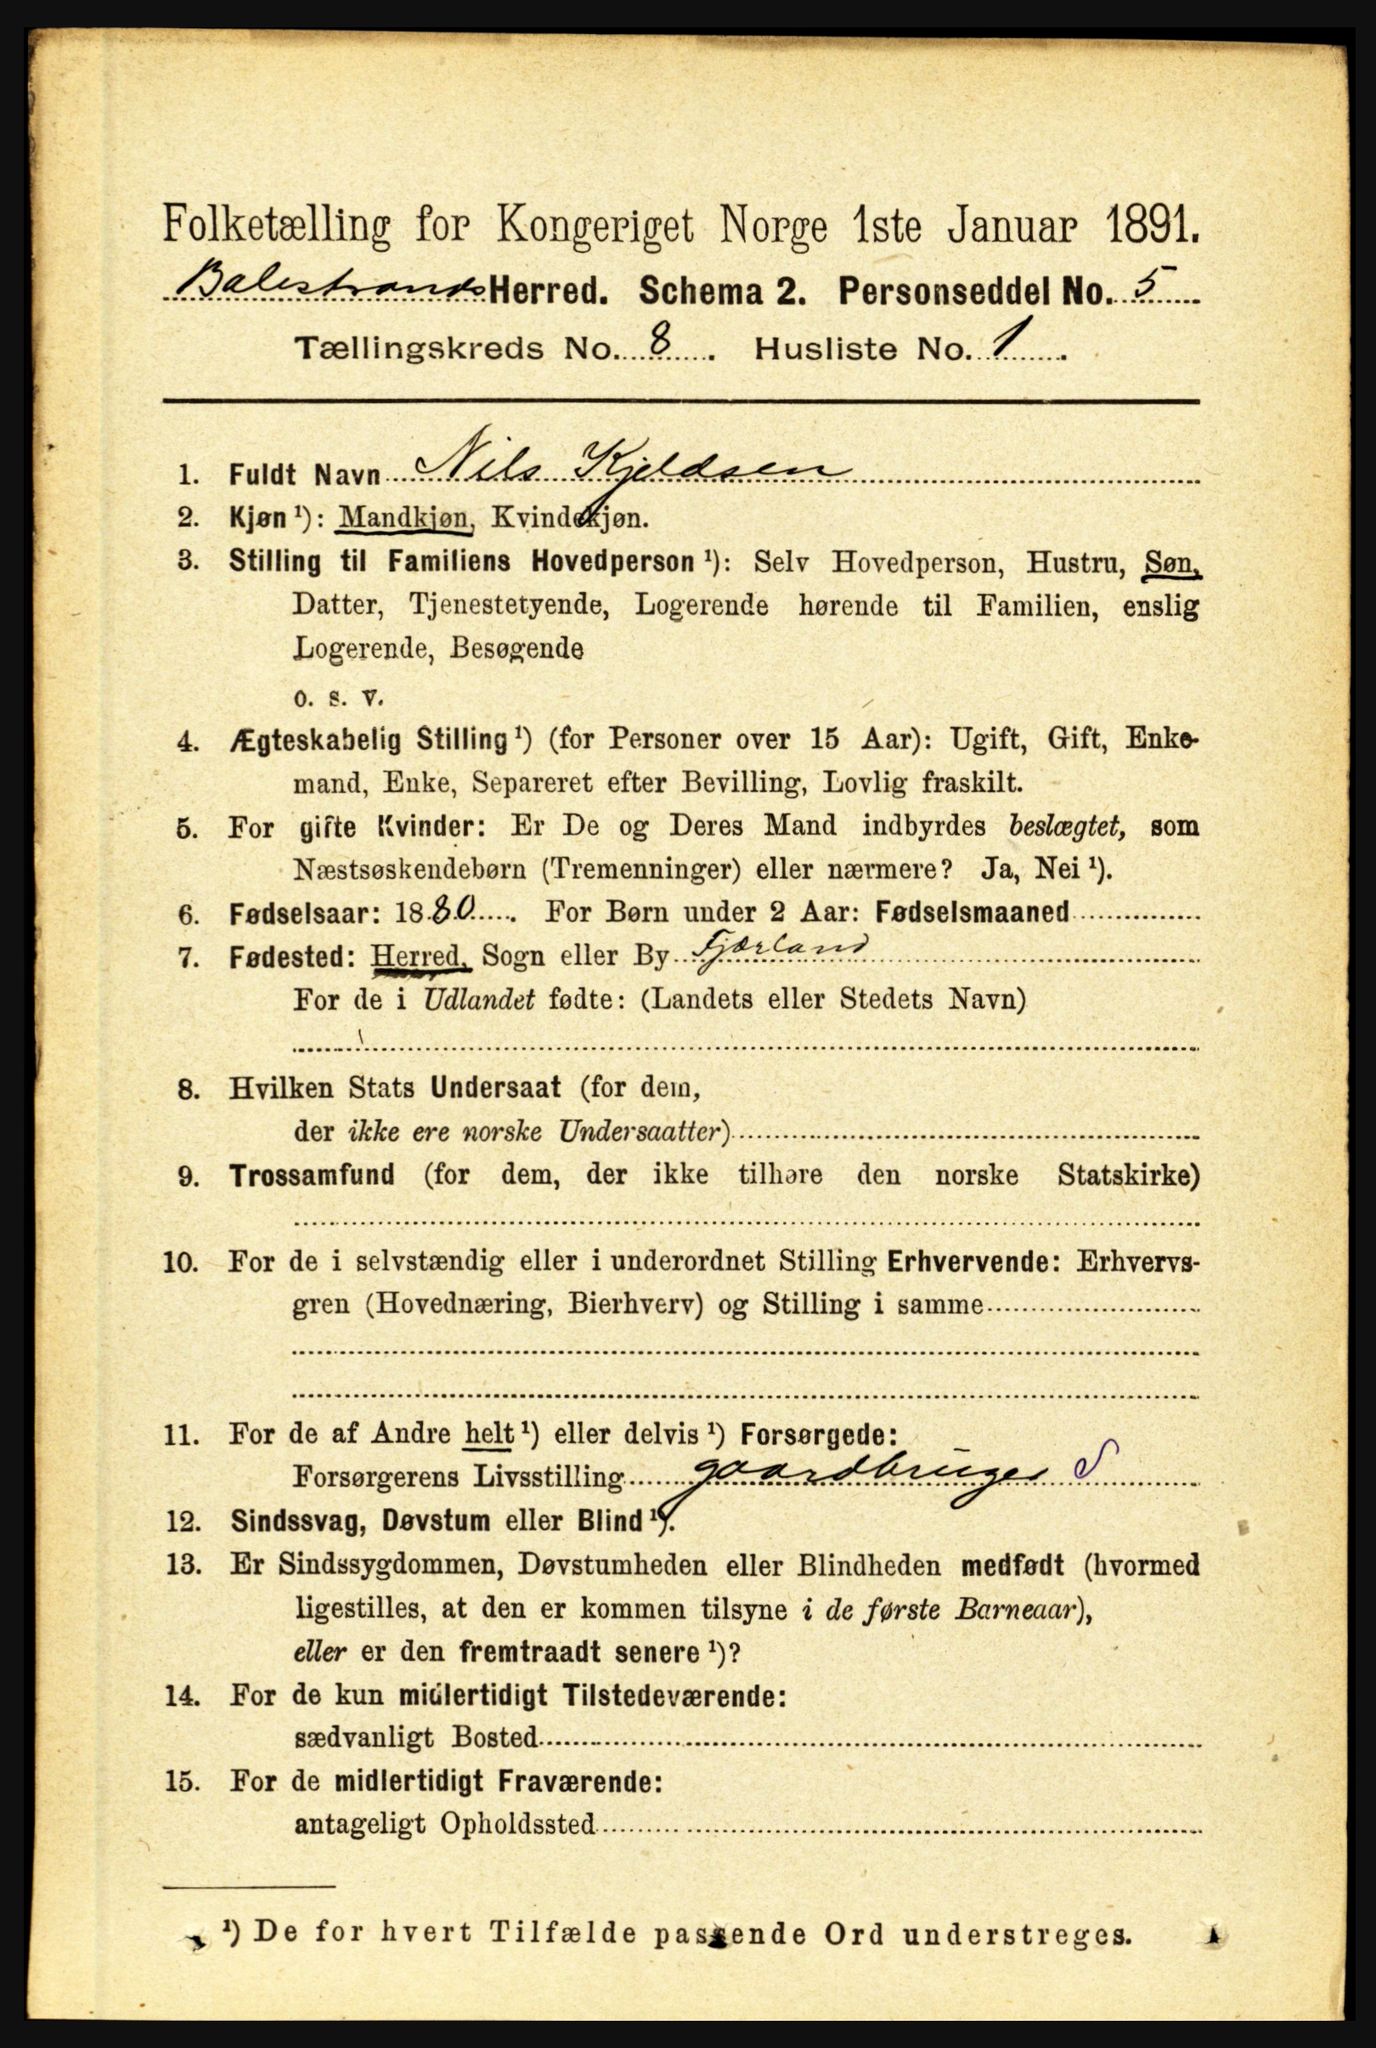 Folketælling for Kongeriget Norge 1ste Januar 1891.
Balestrands Herred. Schema 2. Personseddel No. 5
Tællingskreds No. 8. Husliste No. 1.
1. Fuldt Navn Nils Kjeldsen
2. Kjøn ¹): Mandkjøn, Kvindekjøn.
3. Stilling til Familiens Hovedperson ¹): Selv Hovedperson, Hustru, Søn,
Datter, Tjenestetyende, Logerende hørende til Familien, enslig
Logerende, Besøgende
o. s. v.
4. Ægteskabelig Stilling ¹) (for Personer over 15 Aar): Ugift, Gift, Enke-
mand, Enke, Separeret efter Bevilling, Lovlig fraskilt.
5. For gifte Kvinder: Er De og Deres Mand indbyrdes beslægtet, som
Næstsøskendebørn (Tremenninger) eller nærmere? Ja, Nei ¹).
6. Fødselsaar: 1880. For Børn under 2 Aar: Fødselsmaaned
7. Fødested: Herred, Sogn eller By Fjærland
For de i Udlandet fødte: (Landets eller Stedets Navn)
8. Hvilken Stats Undersaat (for dem,
der ikke ere norske Undersaatter)
9. Trossamfund (for dem, der ikke tilhøre den norske Statskirke)
10. For de i selvstændig eller i underordnet Stilling Erhvervende: Erhvervs-
gren (Hovednæring, Bierhverv) og Stilling i samme
11. For de af Andre helt ¹) eller delvis ¹) Forsørgede:
Forsørgerens Livsstilling gaardbruger S
12. Sindssvag, Døvstum eller Blind ¹).
13. Er Sindssygdommen, Døvstumheden eller Blindheden medfødt (hvormed
ligestilles, at den er kommen tilsyne i de første Barneaar),
eller er den fremtraadt senere ¹)?
14. For de kun midlertidigt Tilstedeværende:
sædvanligt Bosted
15. For de midlertidigt Fraværende:
antageligt Opholdssted
¹) De for hvert Tilfælde passende Ord understreges.